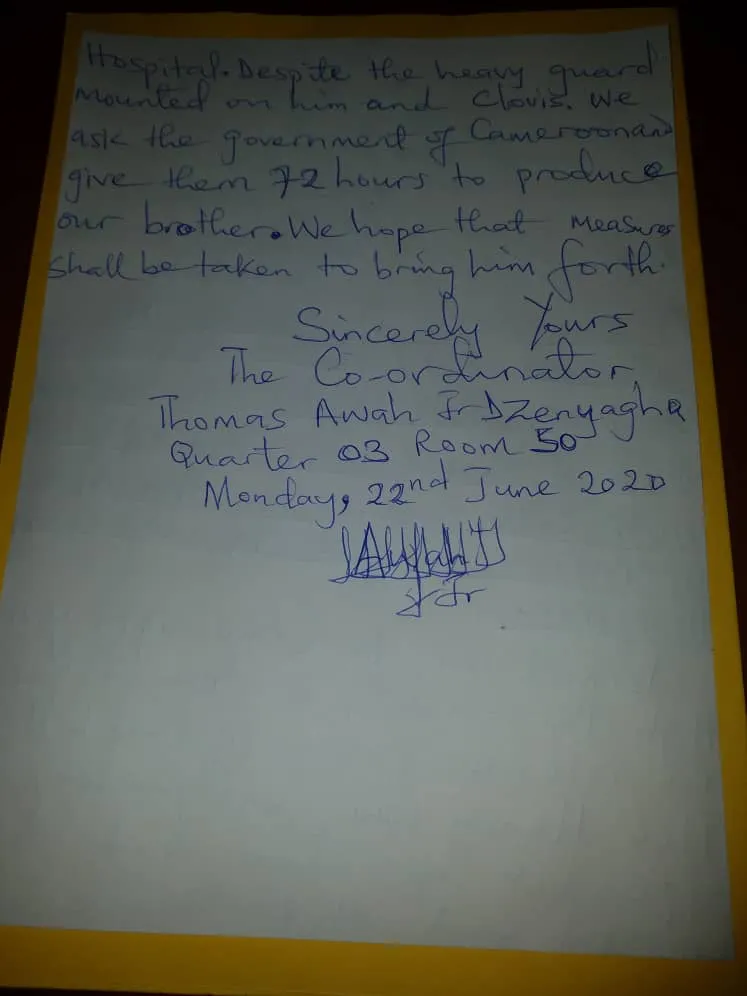 Hospital. Despite the heavy guard
mounted on him and Clovis. We
ask the government of Cameroon and
give them 72 hours to produce
our brother. We hope that measures
shall be taken to bring him forth.
Sincerely Yours
The Co-ordinator,
Thomas Awah Jr Dzenyagha
Quarter 03 Room 50
Monday, 22nd June 2020
Jr